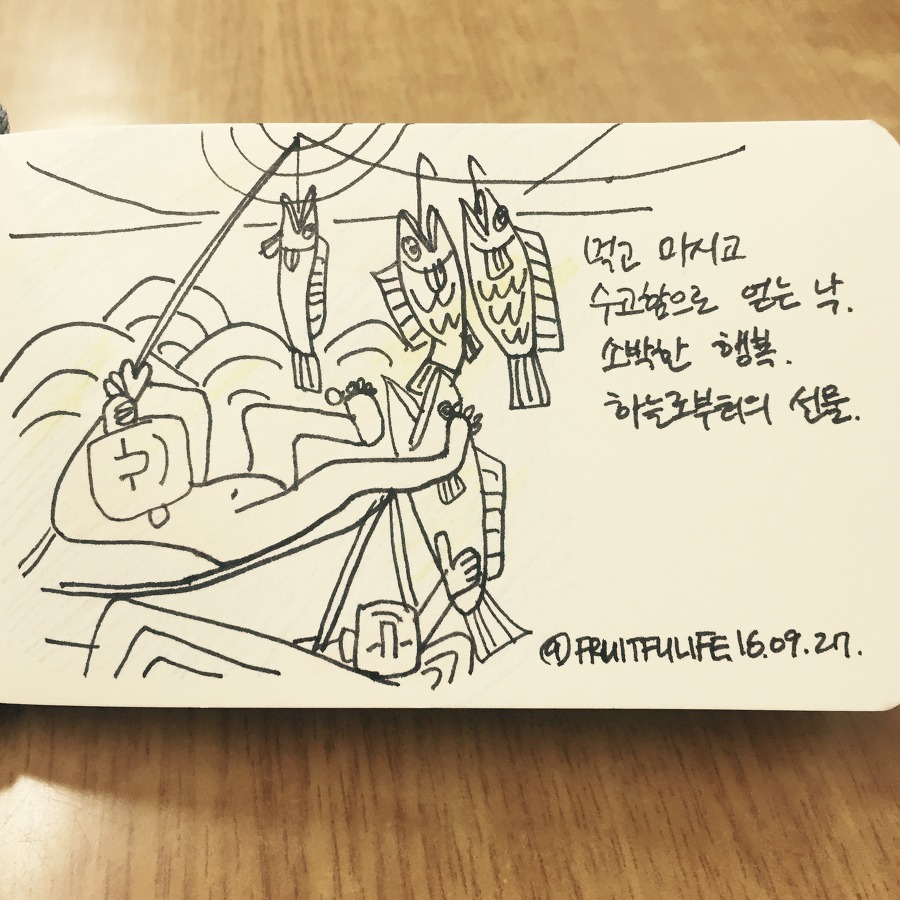 먹고 마시고
수고함으로 얻는 낙.
소박한 행복.
하늘로부터의 선물.
@FRUITFULIFE. 16.09.27.